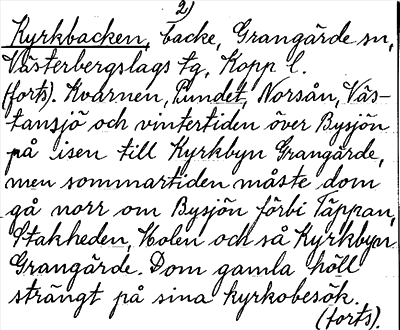 2)
Kyrkbacken, backe, Grangärde sn,
Västerbergslags tg, Kopp l.
(forts). Kvarnen, Rundet, Norsån, Väs-
tansjö och vintertiden över Bysjön
på isen till Kyrkbyn Grangärde,
men sommartiden måste dom
gå norr om Bysjön förbi Täppan,
Stakheden, Holen och så Kyrkbyn
Grangärde. Dom gamla höll
strängt på sina kyrkobesök.
(forts).